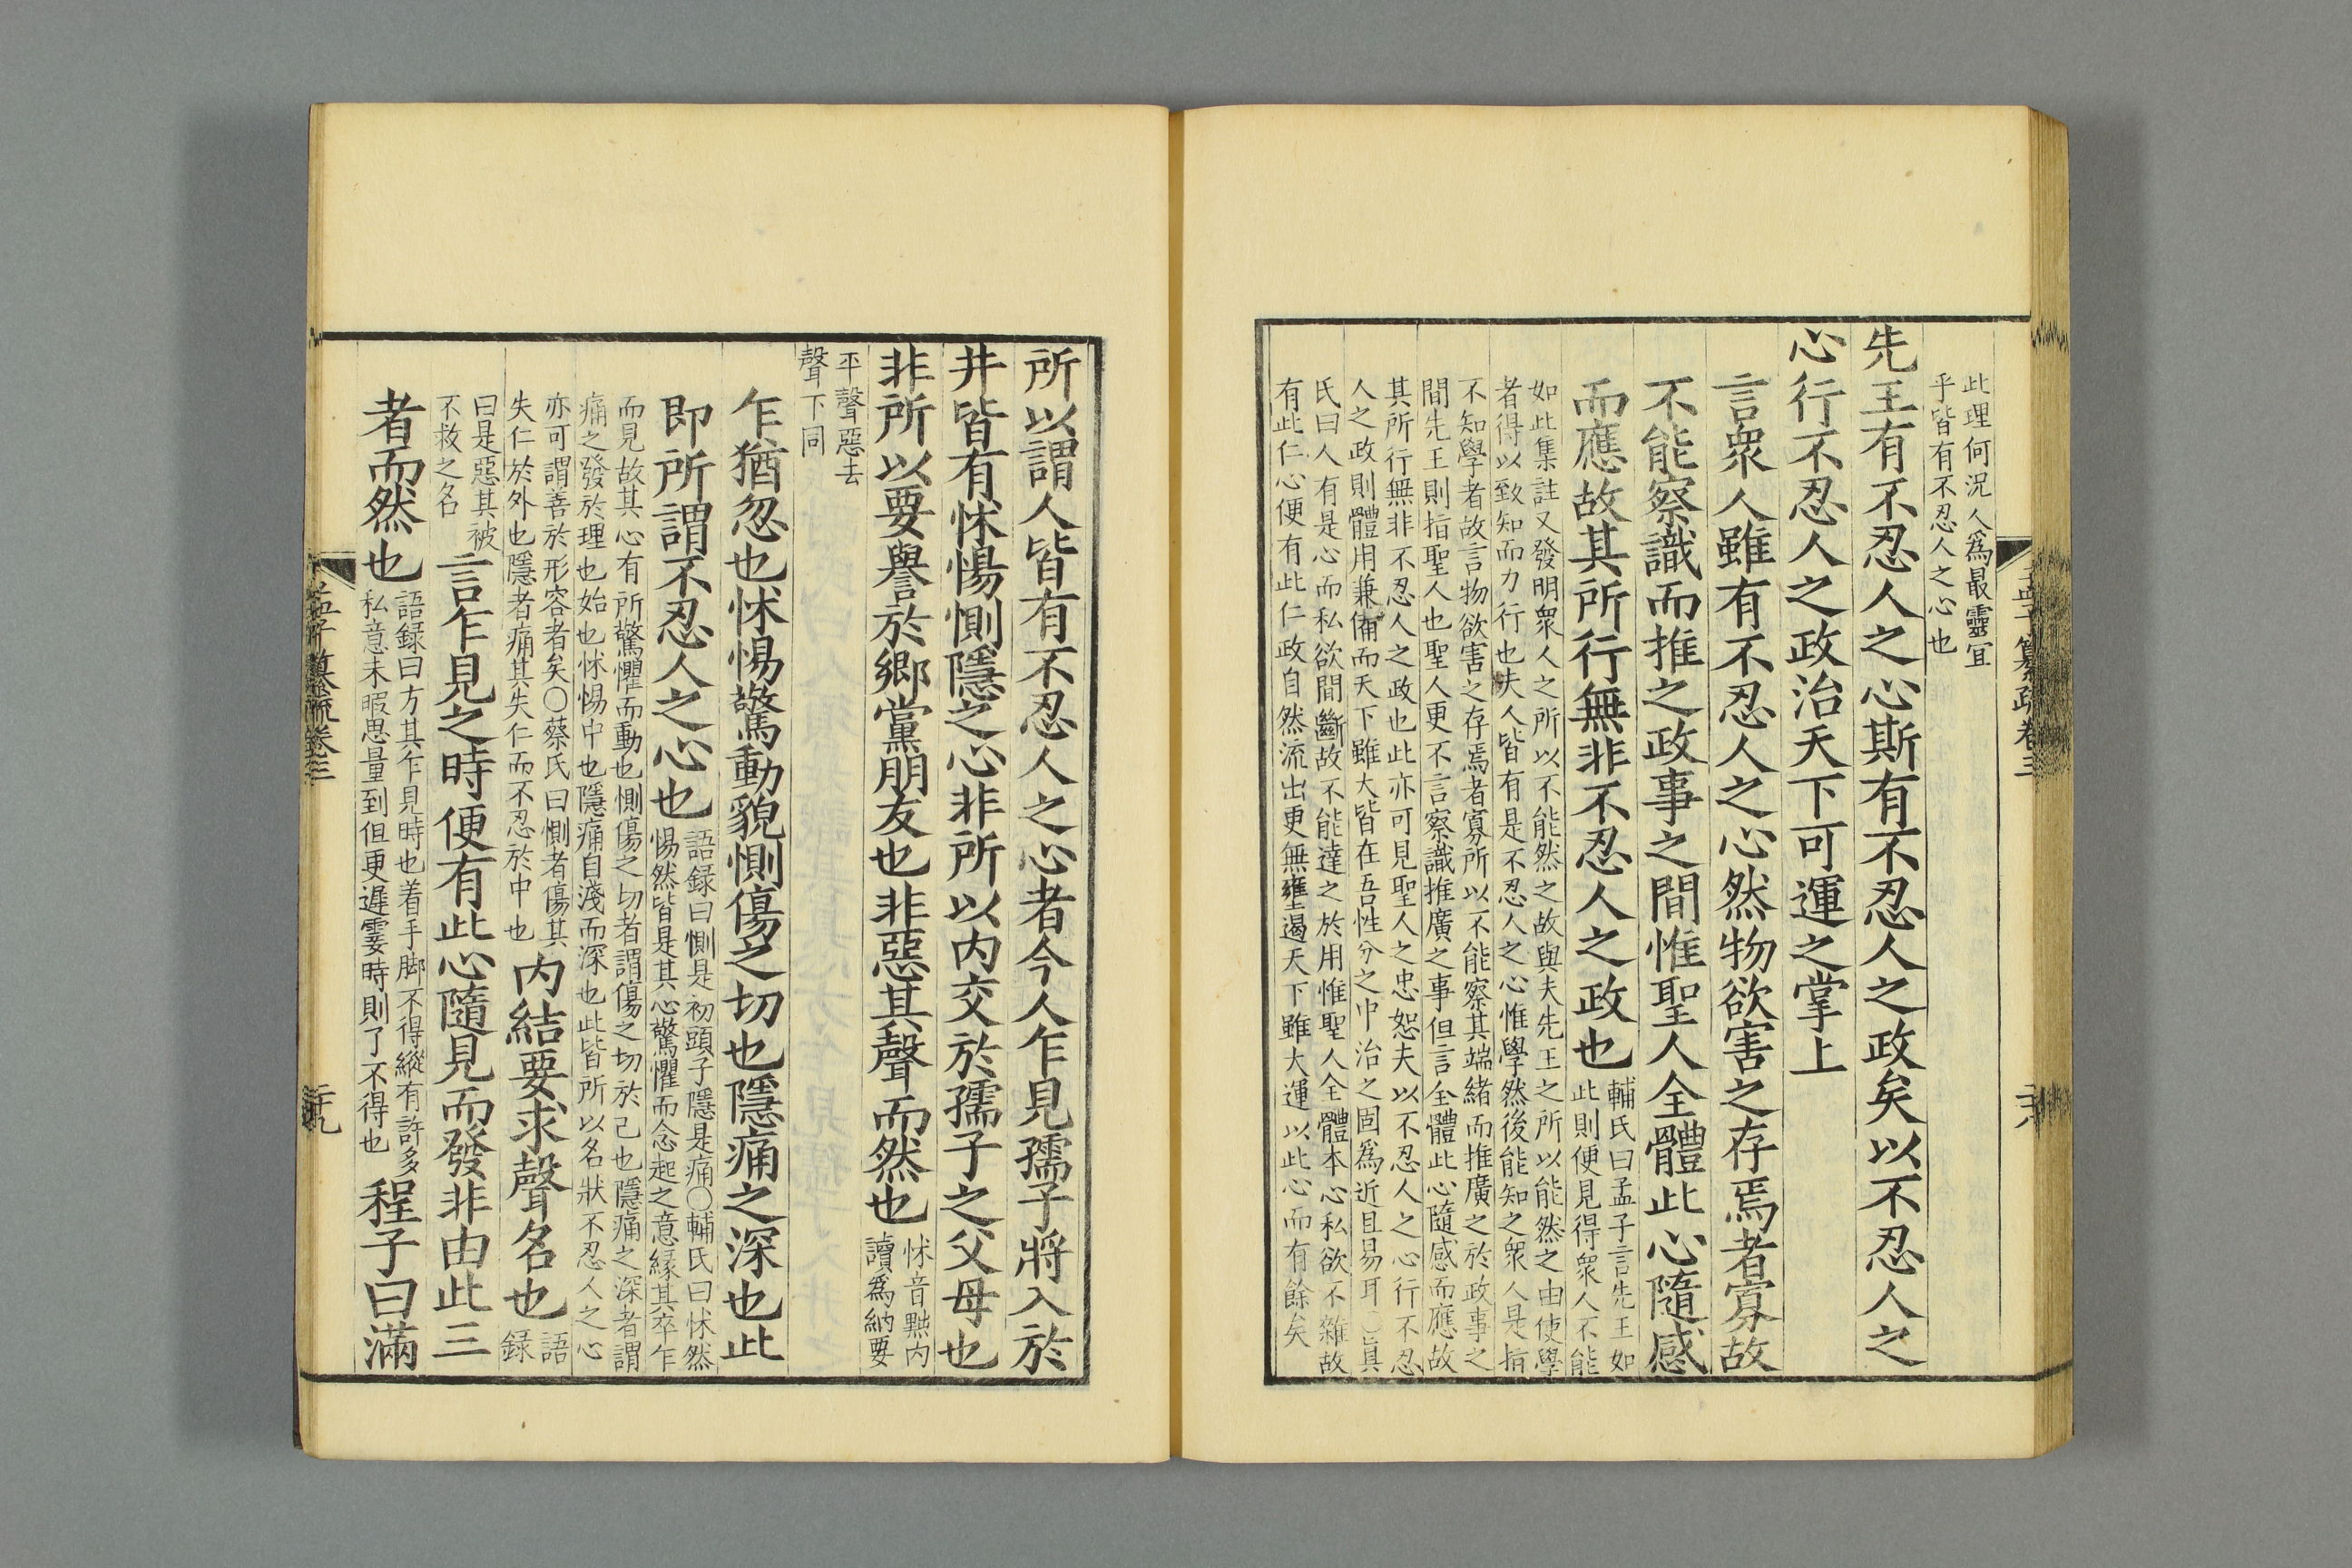 此理何況人爲最靈宜
乎皆有不忍人之心也
先王有不忍人之心斯有不忍人之政矣以不忍人之
心行不忍人之政治天下可運之掌上
言衆人雖有不忍人之心然物欲害之存焉者寡故
不能察識而推之政事之間惟聖人全體此心隨感
而應故其所行無非不忍人之政也
輔氏曰孟子言先王如
此則便見得衆人不能
如此集註又發明衆人之所以不能然之故與夫先王之所以能然之由使學
者得以致知而力行也夫人皆有是不忍人之心惟學然後能知之衆人是指
不知學者故言物欲害之存焉者寡所以不能察其端緒而推廣之於政事之
間先王則指聖人也聖人更不言察識推廣之事但言全體此心隨感而應故
其所行無非不忍人之政也此亦可見聖人之忠恕夫以不忍人之心行不忍
人之政則體用兼備而天下雖大皆在吾性分之中治之固爲近且易耳○眞
氏曰人有是心而私欲間斷故不能達之於用惟聖人全體本心私欲不雜故
有此仁心便有此仁政自然流出更無壅遏天下雖大運以此心而有餘矣
孟子纂疏卷三
所以謂人皆有不忍人之心者今人乍見孺子將入於
井皆有怵惕惻隱之心非所以内交於孺子之父母也
非所以要譽於鄉黨朋友也非惡其聲而然也
怵音黜内
讀爲納要
平聲惡去
聲下同
乍猶忽也怵惕驚動貌惻傷之切也隱痛之深也此
即所謂不忍人之心也
語録曰惻是初頭子隱是痛○輔氏曰怵然
惕然皆是其心驚懼而念起之意緣其卒乍
而見故其心有所驚懼而動也惻傷之切者謂傷之切於己也隱痛之深者謂
痛之發於理也始也怵惕中也隱痛自淺而深也此皆所以名狀不忍人之心
亦可謂善於形容者矣○蔡氏曰惻者傷其
失仁於外也隱者痛其失仁而不忍於中也
内結要求聲名也
語
録
曰是惡其被
不救之名
言乍見之時便有此心隨見而發非由此三
者而然也
語録曰方其乍見時也着手脚不得縱有許多
私意未暇思量到但更遲霎時則了不得也
程子曰滿
孟子纂疏卷三